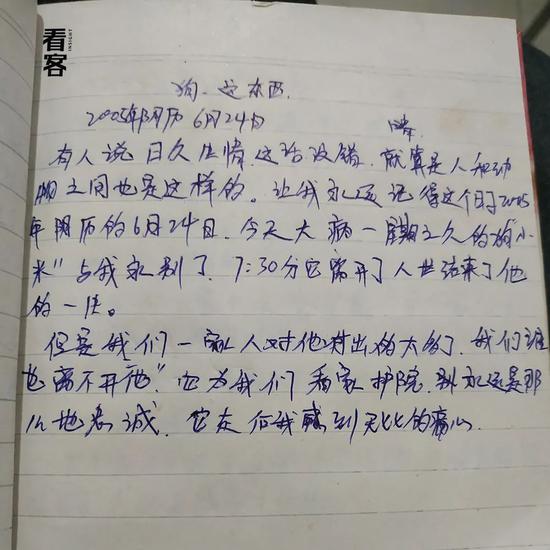 看客
INSIGHT
狗、这东西.
2005年阴历 6月24日
有人说 日久生情,这话没错, 就算是人和动
物之间也是这样的。让我永远记得这个日子2005
年阴历的6月24日. 今天大病一星期之久的狗"小
米"与我永别了. 7:30分它离开了人世结束了他
的一生。
但是我们一家人对他付出的太多了. 我们谁
也离不开他"它为我们看家护院. 永远是那
么地忠诚. 它 我感到无比的痛心.